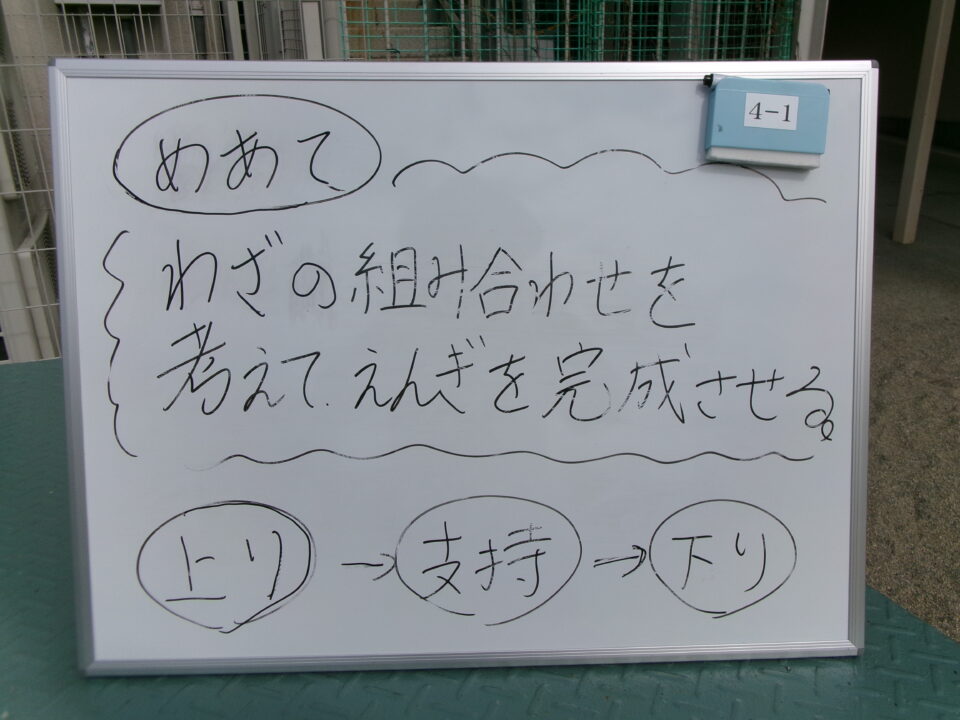 4-1
めあて
わざの組み合わせを
考えて えんぎを完成させる。
上り → 支持 → 下り